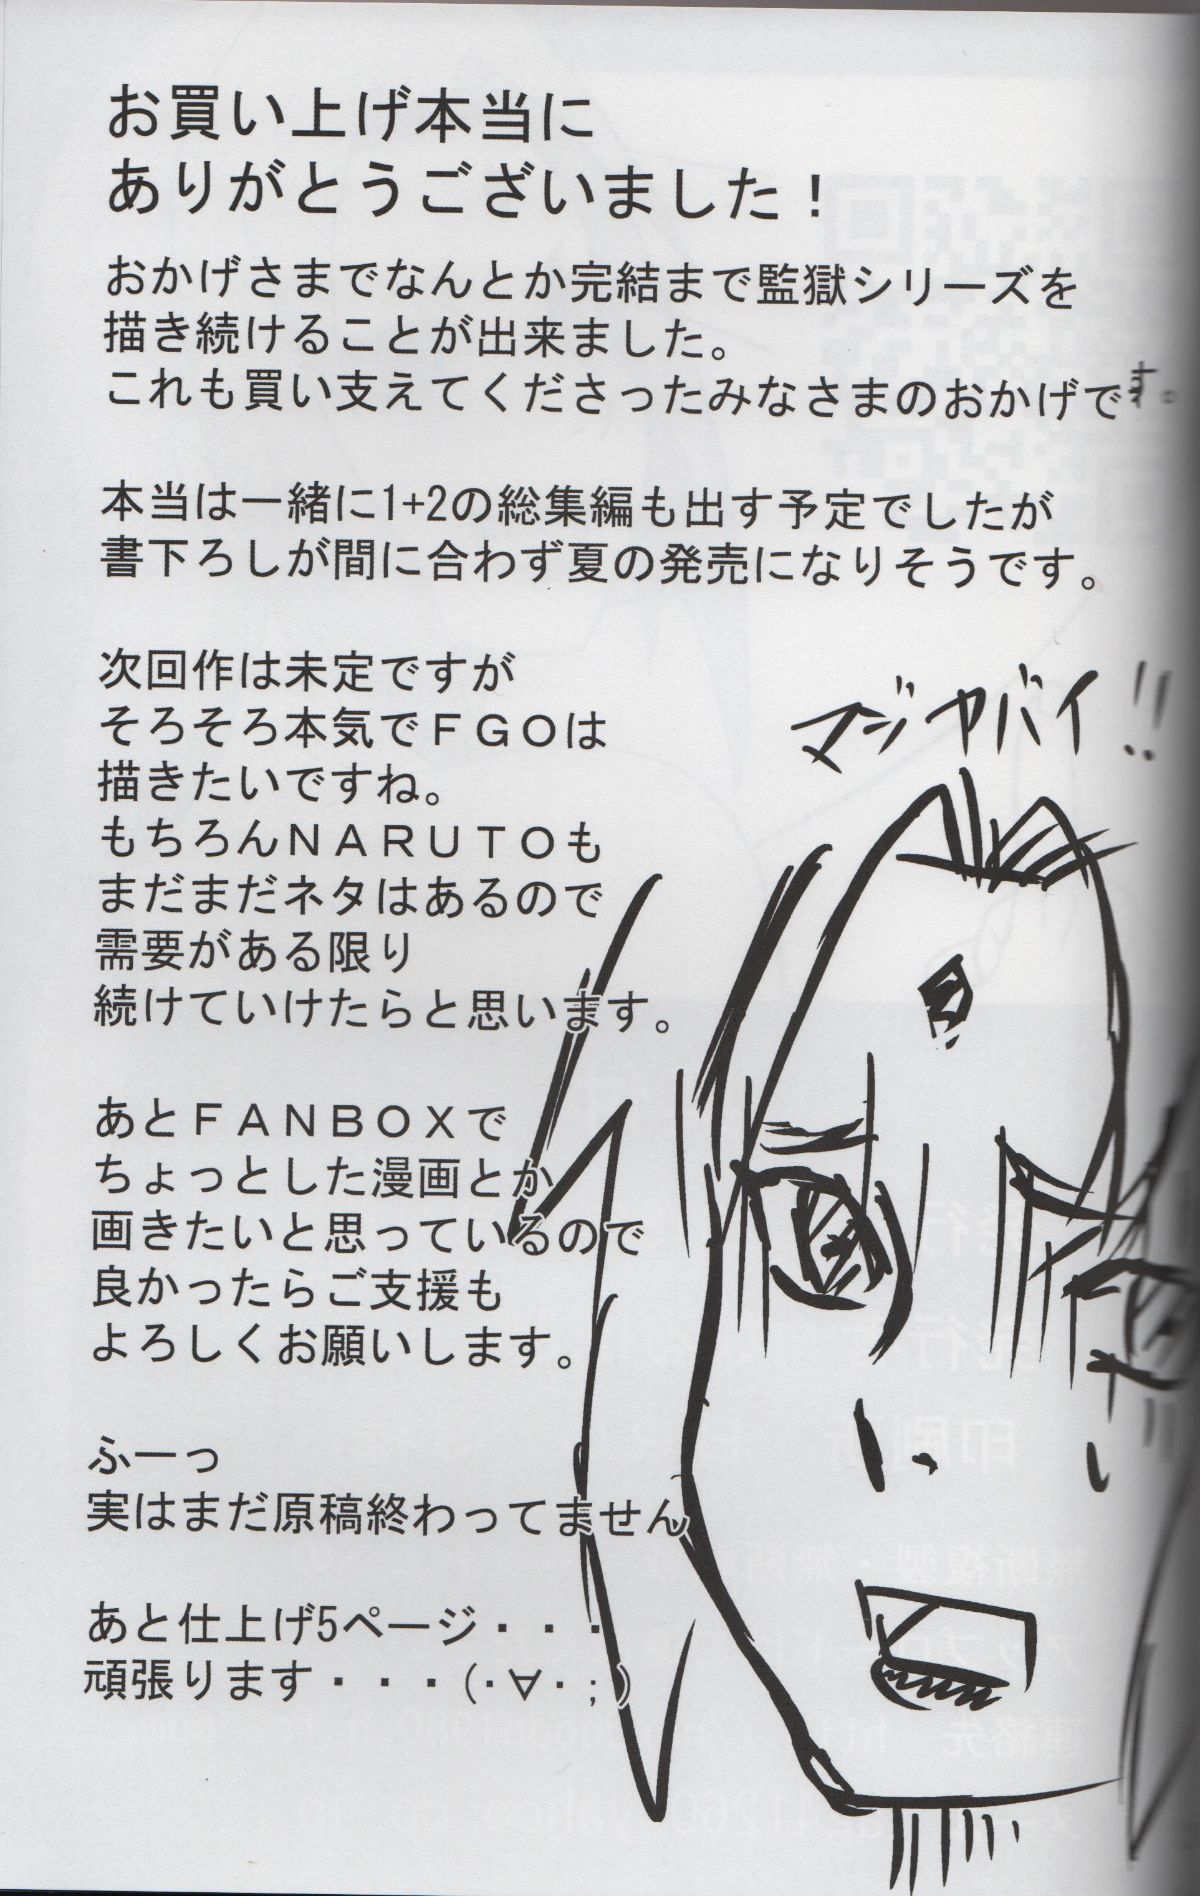 お買い上げ本当に
ありがとうございました！
おかげさまでなんとか完結まで監獄シリーズを
描き続けることが出来ました。
これも買い支えてくださったみなさまのおかげです。
本当は一緒に1+2の総集編も出す予定でしたが
書下ろしが間に合わず夏の発売になりそうです。
次回作は未定ですが
そろそろ本気でＦＧＯは
描きたいですね。
もちろんＮＡＲＵＴＯも
まだまだネタはあるので
需要がある限り
続けていけたらと思います。
マジヤバイ!!
あとＦＡＮＢＯＸで
ちょっとした漫画とか
画きたいと思っているので
良かったらご支援も
よろしくお願いします。
ふーっ
実はまだ原稿終わってません
あと仕上げ5ページ・・・
頑張ります・・・(・∀・;)